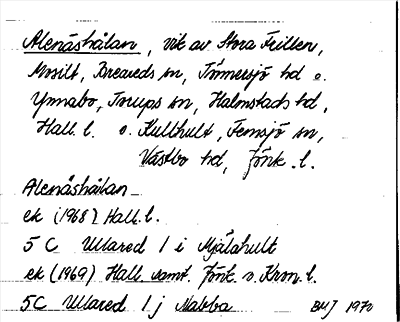 Alenäshålan, vik av Stora Frillen,
Mosilt, Breareds sn, Tönnersjö hd o.
Yttnabo, Torups sn, Halmstads hd,
Hall. l. o. Kulthult, Femsjö sn,
Västbo hd, Jönk. l.
Alenåshålan
ek (1968) Hall. l.
5 C Ullared 1 i Mjälahult
ek (1969) Hall. samt. Jönk o. Kron. l.
5C Ullared 1 j Nabba BMJ 1970